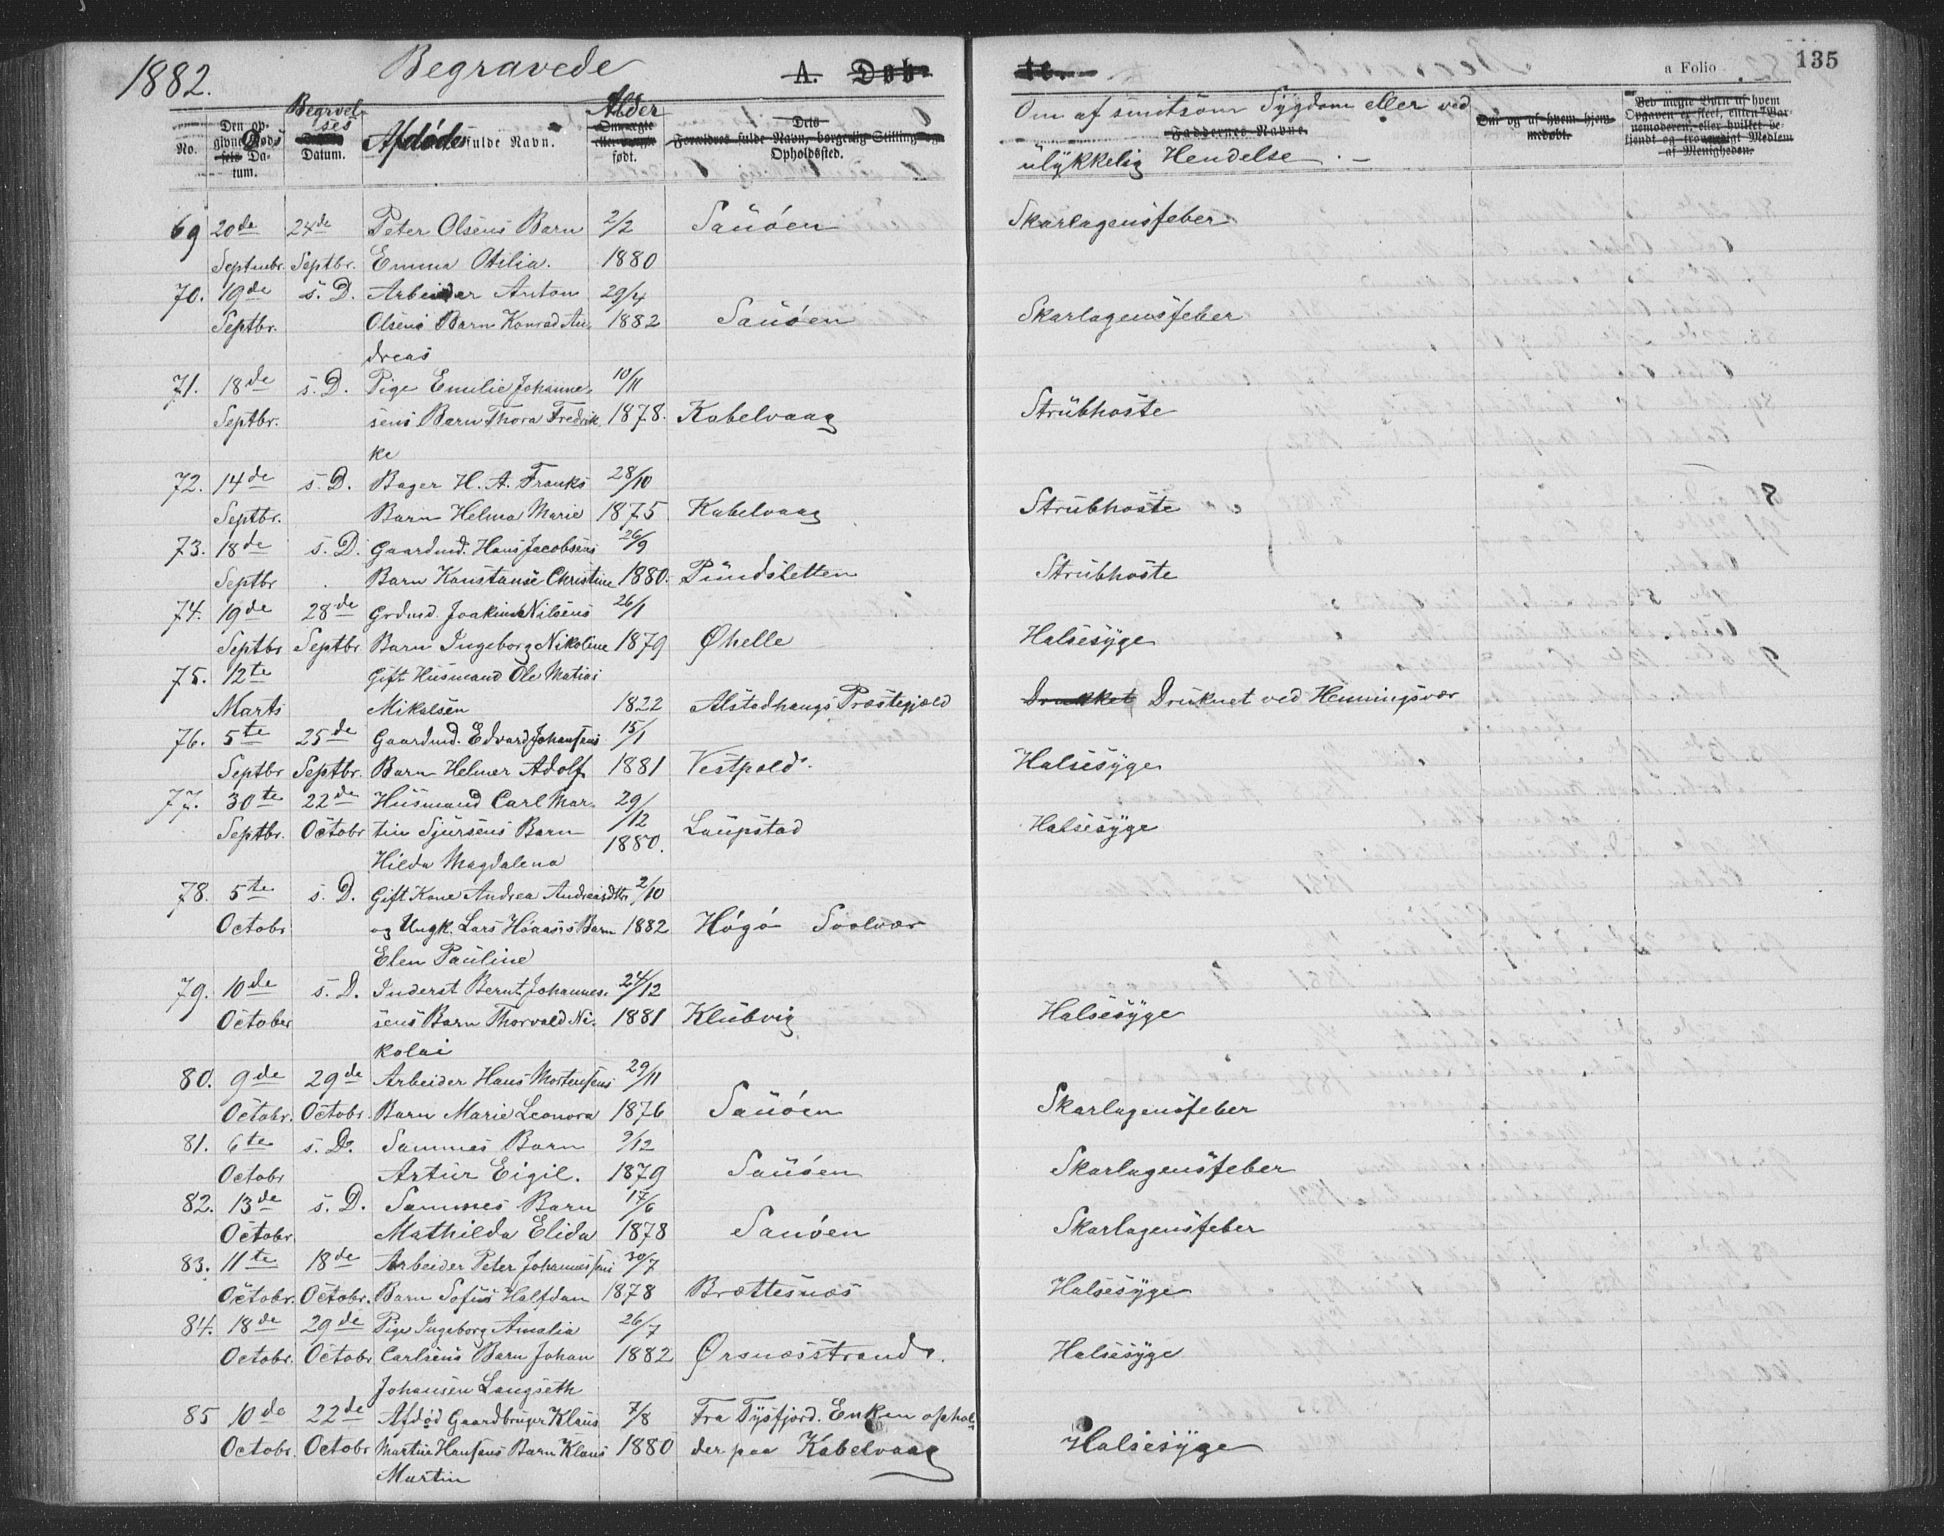 1882. Begravede A. Døb- te. a Folio 135
No. Den opgivne Døds Datum. Begravelses Datum. Afdødes fulde Navn. Alder Omægte eller født. Dets Forældres fulde Navn, borgerlig Stilling og Opholdssted. Om af smitsom Sygdom eller ved Faddernes Navne. ulykkelig Hendelse. Om og af hvem hjemmedøbt.
69 20de 24de Peter Olsens Barn 2/2 Sauøen Skarlagensfeber
Septmbr. Septbr. Emma Otilia. 1880
70. 19de s. D. Arbeider Anton 29/4
Septbr. Olsens Barn Konrad An- 1882 Sauøen Skarlagensfeber
dreas
71. 18de s. D. Pige Emilie Johanne- 10/11
Septbr. sens Barn Thora Fredrik 1878. Kabelvaag Strubhoste
ke
72. 14de s. D. Bager H. A. Franks 28/10
Septbr. Barn Helma Marie 1875 Kabelvaag Strubhoste
73. 18de s. D. Gaardmd. Hans Jacobsens 26/9
Septbr Barn Konstanse Christine 1880. Pundsletten Strubhoste
74. 19de 28de Grdmd. Joakim Nilsens 26/1
Septbr Septbr. Barn Ingeborg Nikoline 1879 Øhelle Halsesyge
75. 12te Gift Husmand Ole Matias
Marts Mikalsen 1822 Alstadhaugs Præstegjæld Drukket Druknet ved Henningsvær
76. 5te 25de Gaardmd. Edvard Johansens 15/1
Septbr Septbr. Barn Helmer Adolf 1881 Vestpold. Halsesyge
77. 30te 22de Husmand Carl Mar- 29/12
Septbr. Octobr tin Sjursens Barn 1880. Laupstad Halsesyge
Hilda Magdalena
78. 5te s. D. Gift Kone Andrea Andreasdtr 2/10
Octobr og Ungk. Lars Hoaas's Barn 1882 Høgø Svolvær
Elen Pauline
79. 10de s. D. Inderst Bernt Johannes- 24/12
October sens Barn Thorvald Ni- 1881 Klubvig Halsesyge
kolai
80. 9de 29de Arbeider Hans Mortensens 29/11
Octobr. Octobr. Barn Marie Leonora 1876 Sauøen Skarlagensfeber
81. 6te s. D. Sammes Barn 9/12
Octobr Artur Eigil. 1879 Sauøen Skarlagensfeber
82. 13de s. D. Sammes Barn 17/6
Octobr. Mathilda Elida 1878 Sauøen Skarlagensfeber
83. 11te 18de Arbeider Peter Johannessens 30/7
Octobr. Octobr. Barn Sofus Halfdan 1878 Brættesnæs Halsesyge
84. 18de 29de Pige Ingeborg Amalia 26/7
Octobr. Octobr Carlsens Barn Johan 1882 Ørsnæsstrand. Halsesyge
Johansen Langseth
85 10de 22de Afdød Gaardbruger Klaus 7/8 Fra Tysfjord. Enken ophol-
Octobr. Octobr Martin Hansens Barn Klaus 1880 der paa Kabelvaag Halsesyge
Martin